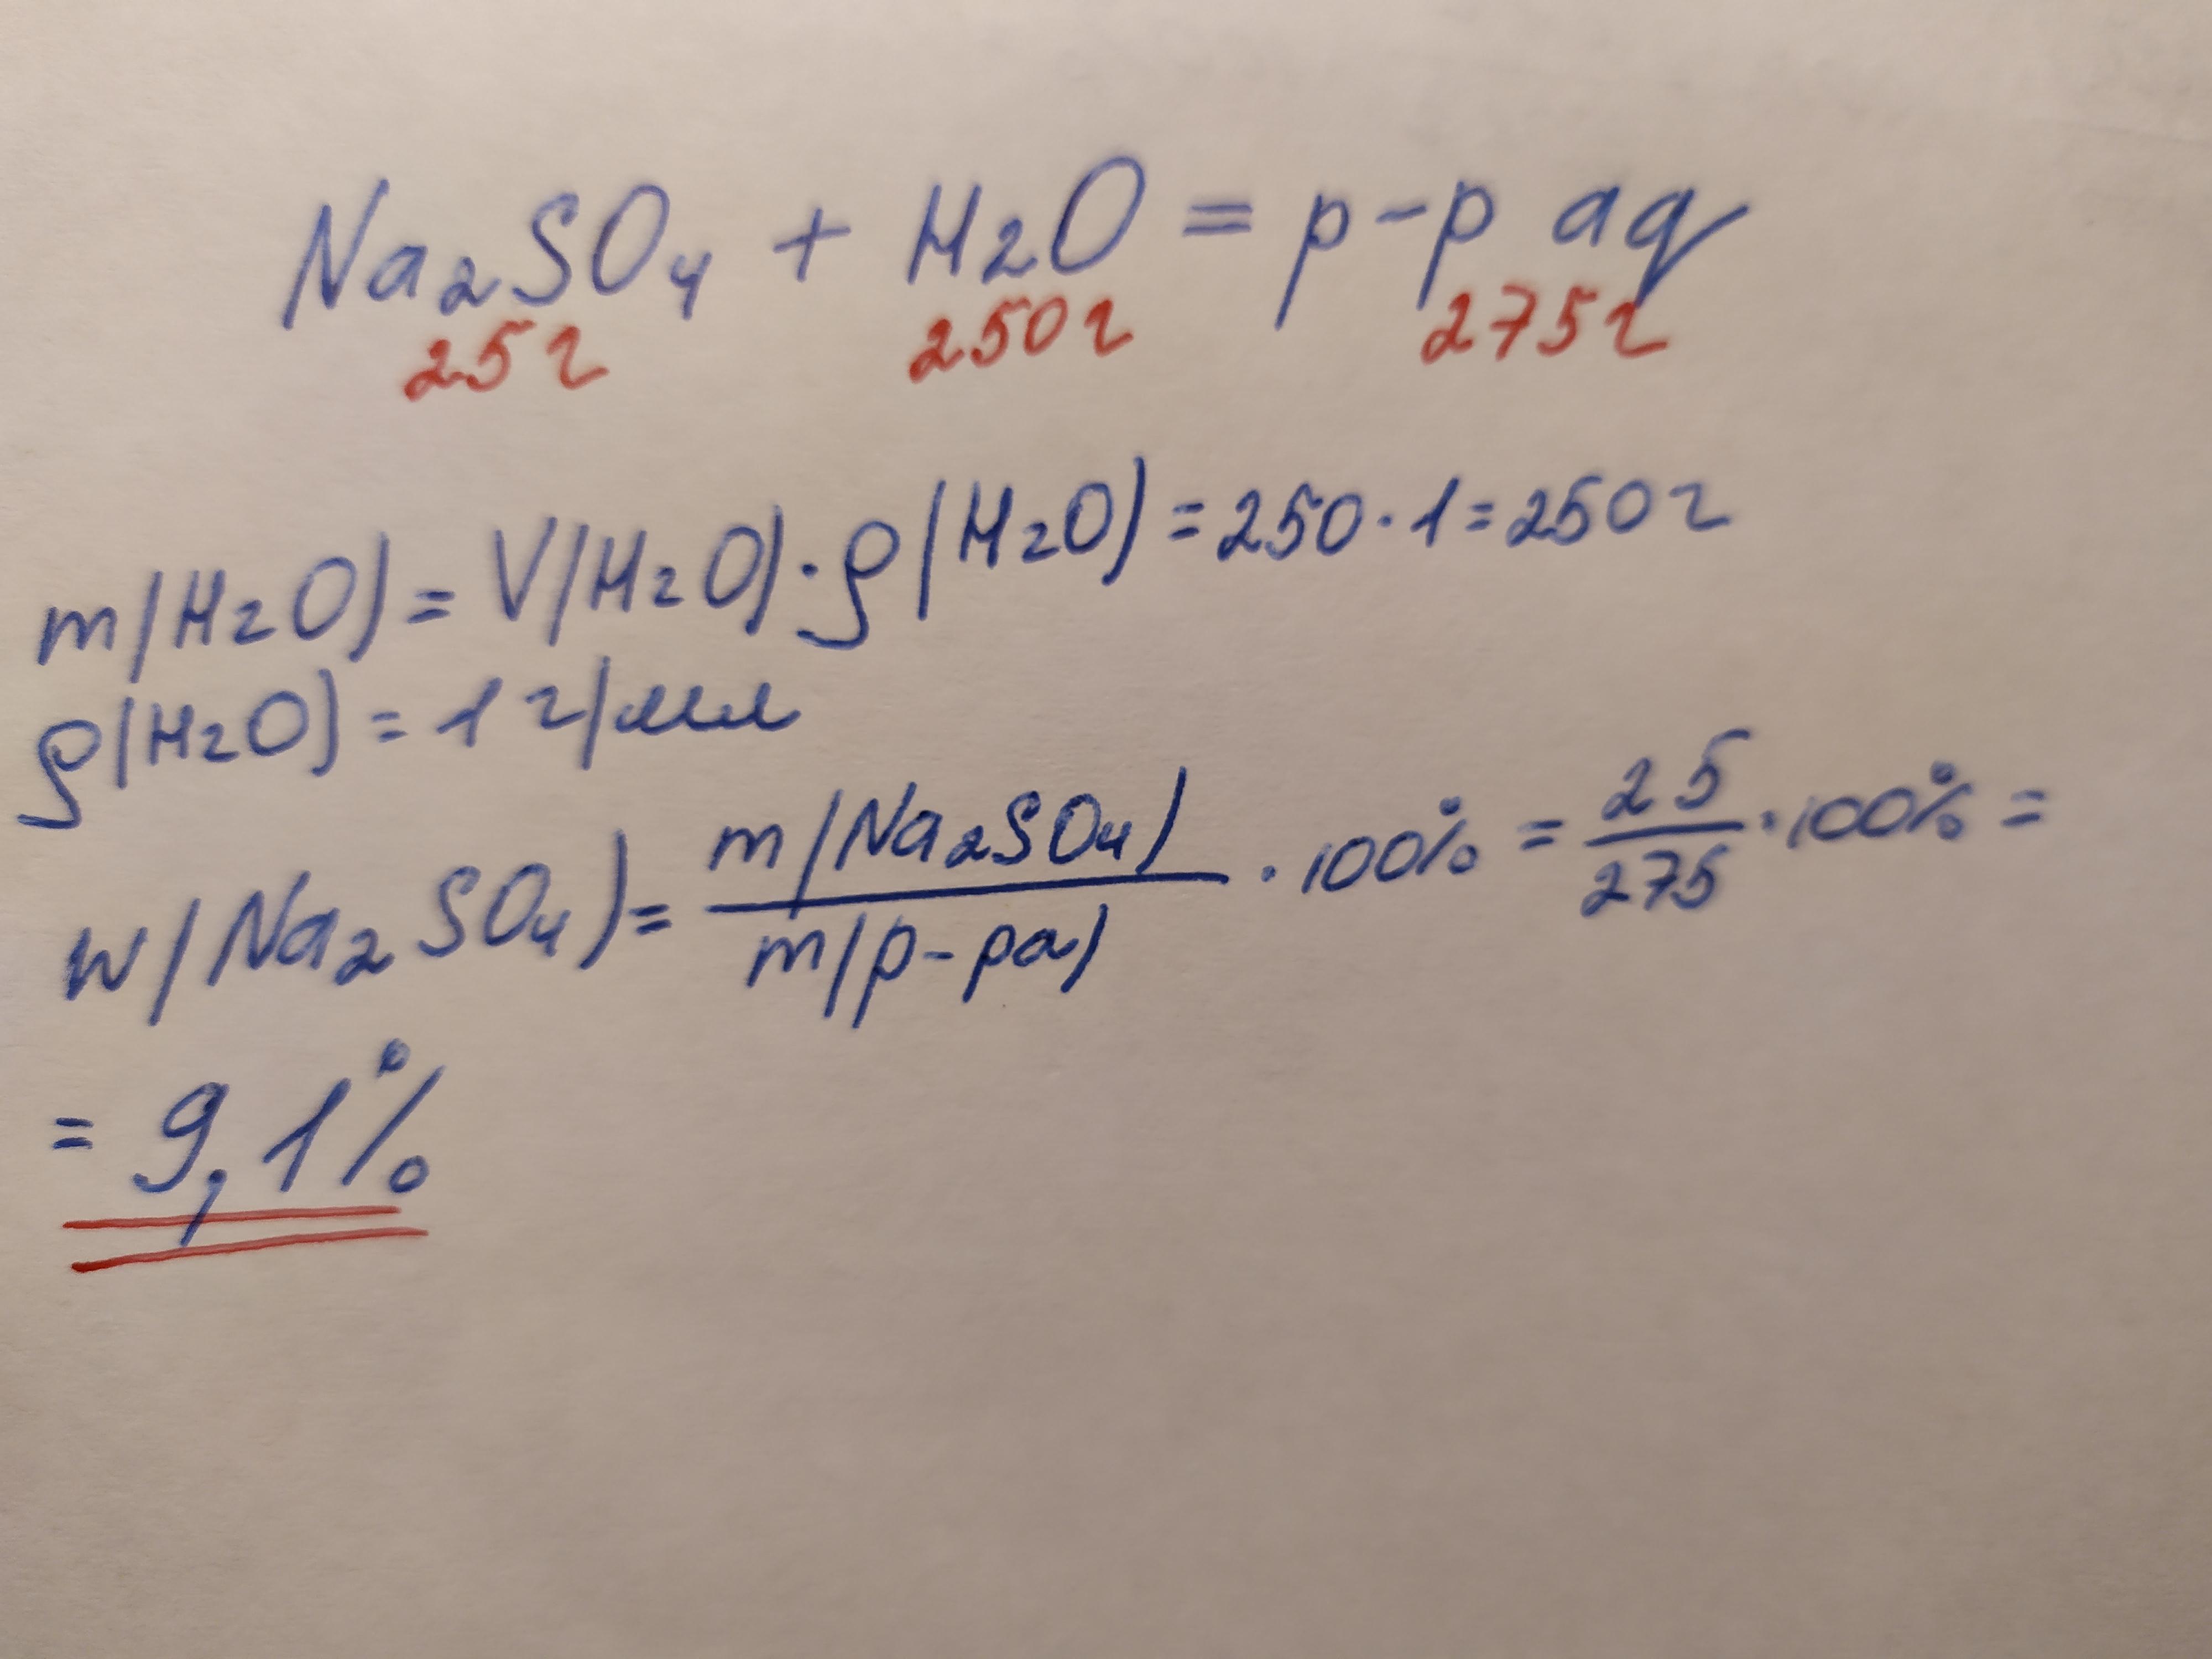 Na₂SO₄ + H₂O = р-р aq
25г 250г 275г
m(H₂O) = V(H₂O)·ρ(H₂O) = 250·1 = 250г
ρ(H₂O) = 1 г/мл
w(Na₂SO₄) = m(Na₂SO₄) / m(р-ра) · 100% = 25/275 · 100% =
= 9,1%